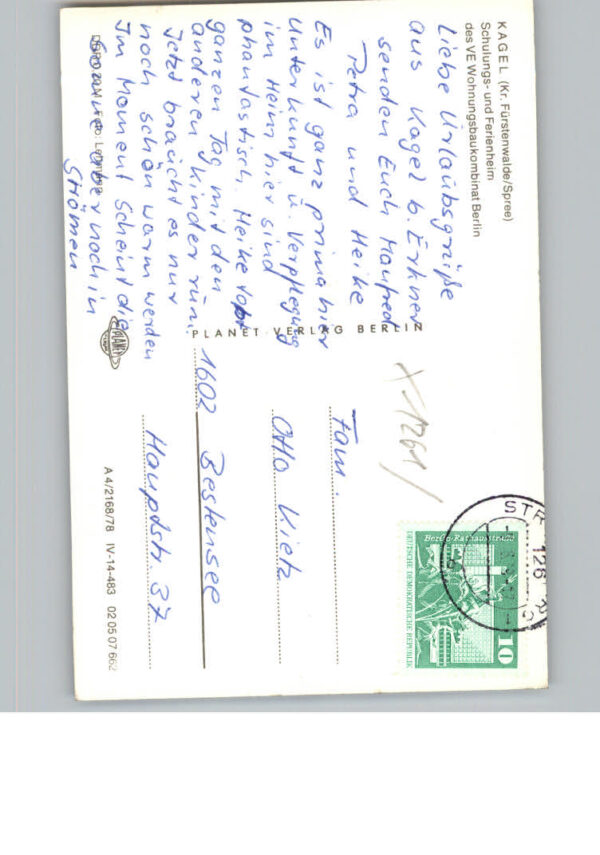 KAGEL (Kr. Fürstenwalde/Spree)
Schulungs- und Ferienheim
des VE Wohnungsbaukombinat Berlin
Liebe Urlaubsgrüße
aus Kagel b. Erkner
senden Euch Manfred
Petra und Heike
Es ist ganz prima hier
Unterkunft u. Verpflegung
im Heim hier sind
phantastisch, Heike
ganzen Tag mit den
anderen Kinder
Jetzt braucht es nur
noch schön warm werden
Im Moment Scheint die
Sonne aber noch in
Strömen
PLANET VERLAG BERLIN
PLANET
Fam.
Otto Kietz
1602 Bestensee
Hauptstr. 37
A 4/2168/78 IV-14-483 02 05 07 662
1261
STR
126
Berlin-Rathausstraße
DEUTSCHE DEMOKRATISCHE REPUBLIK
10